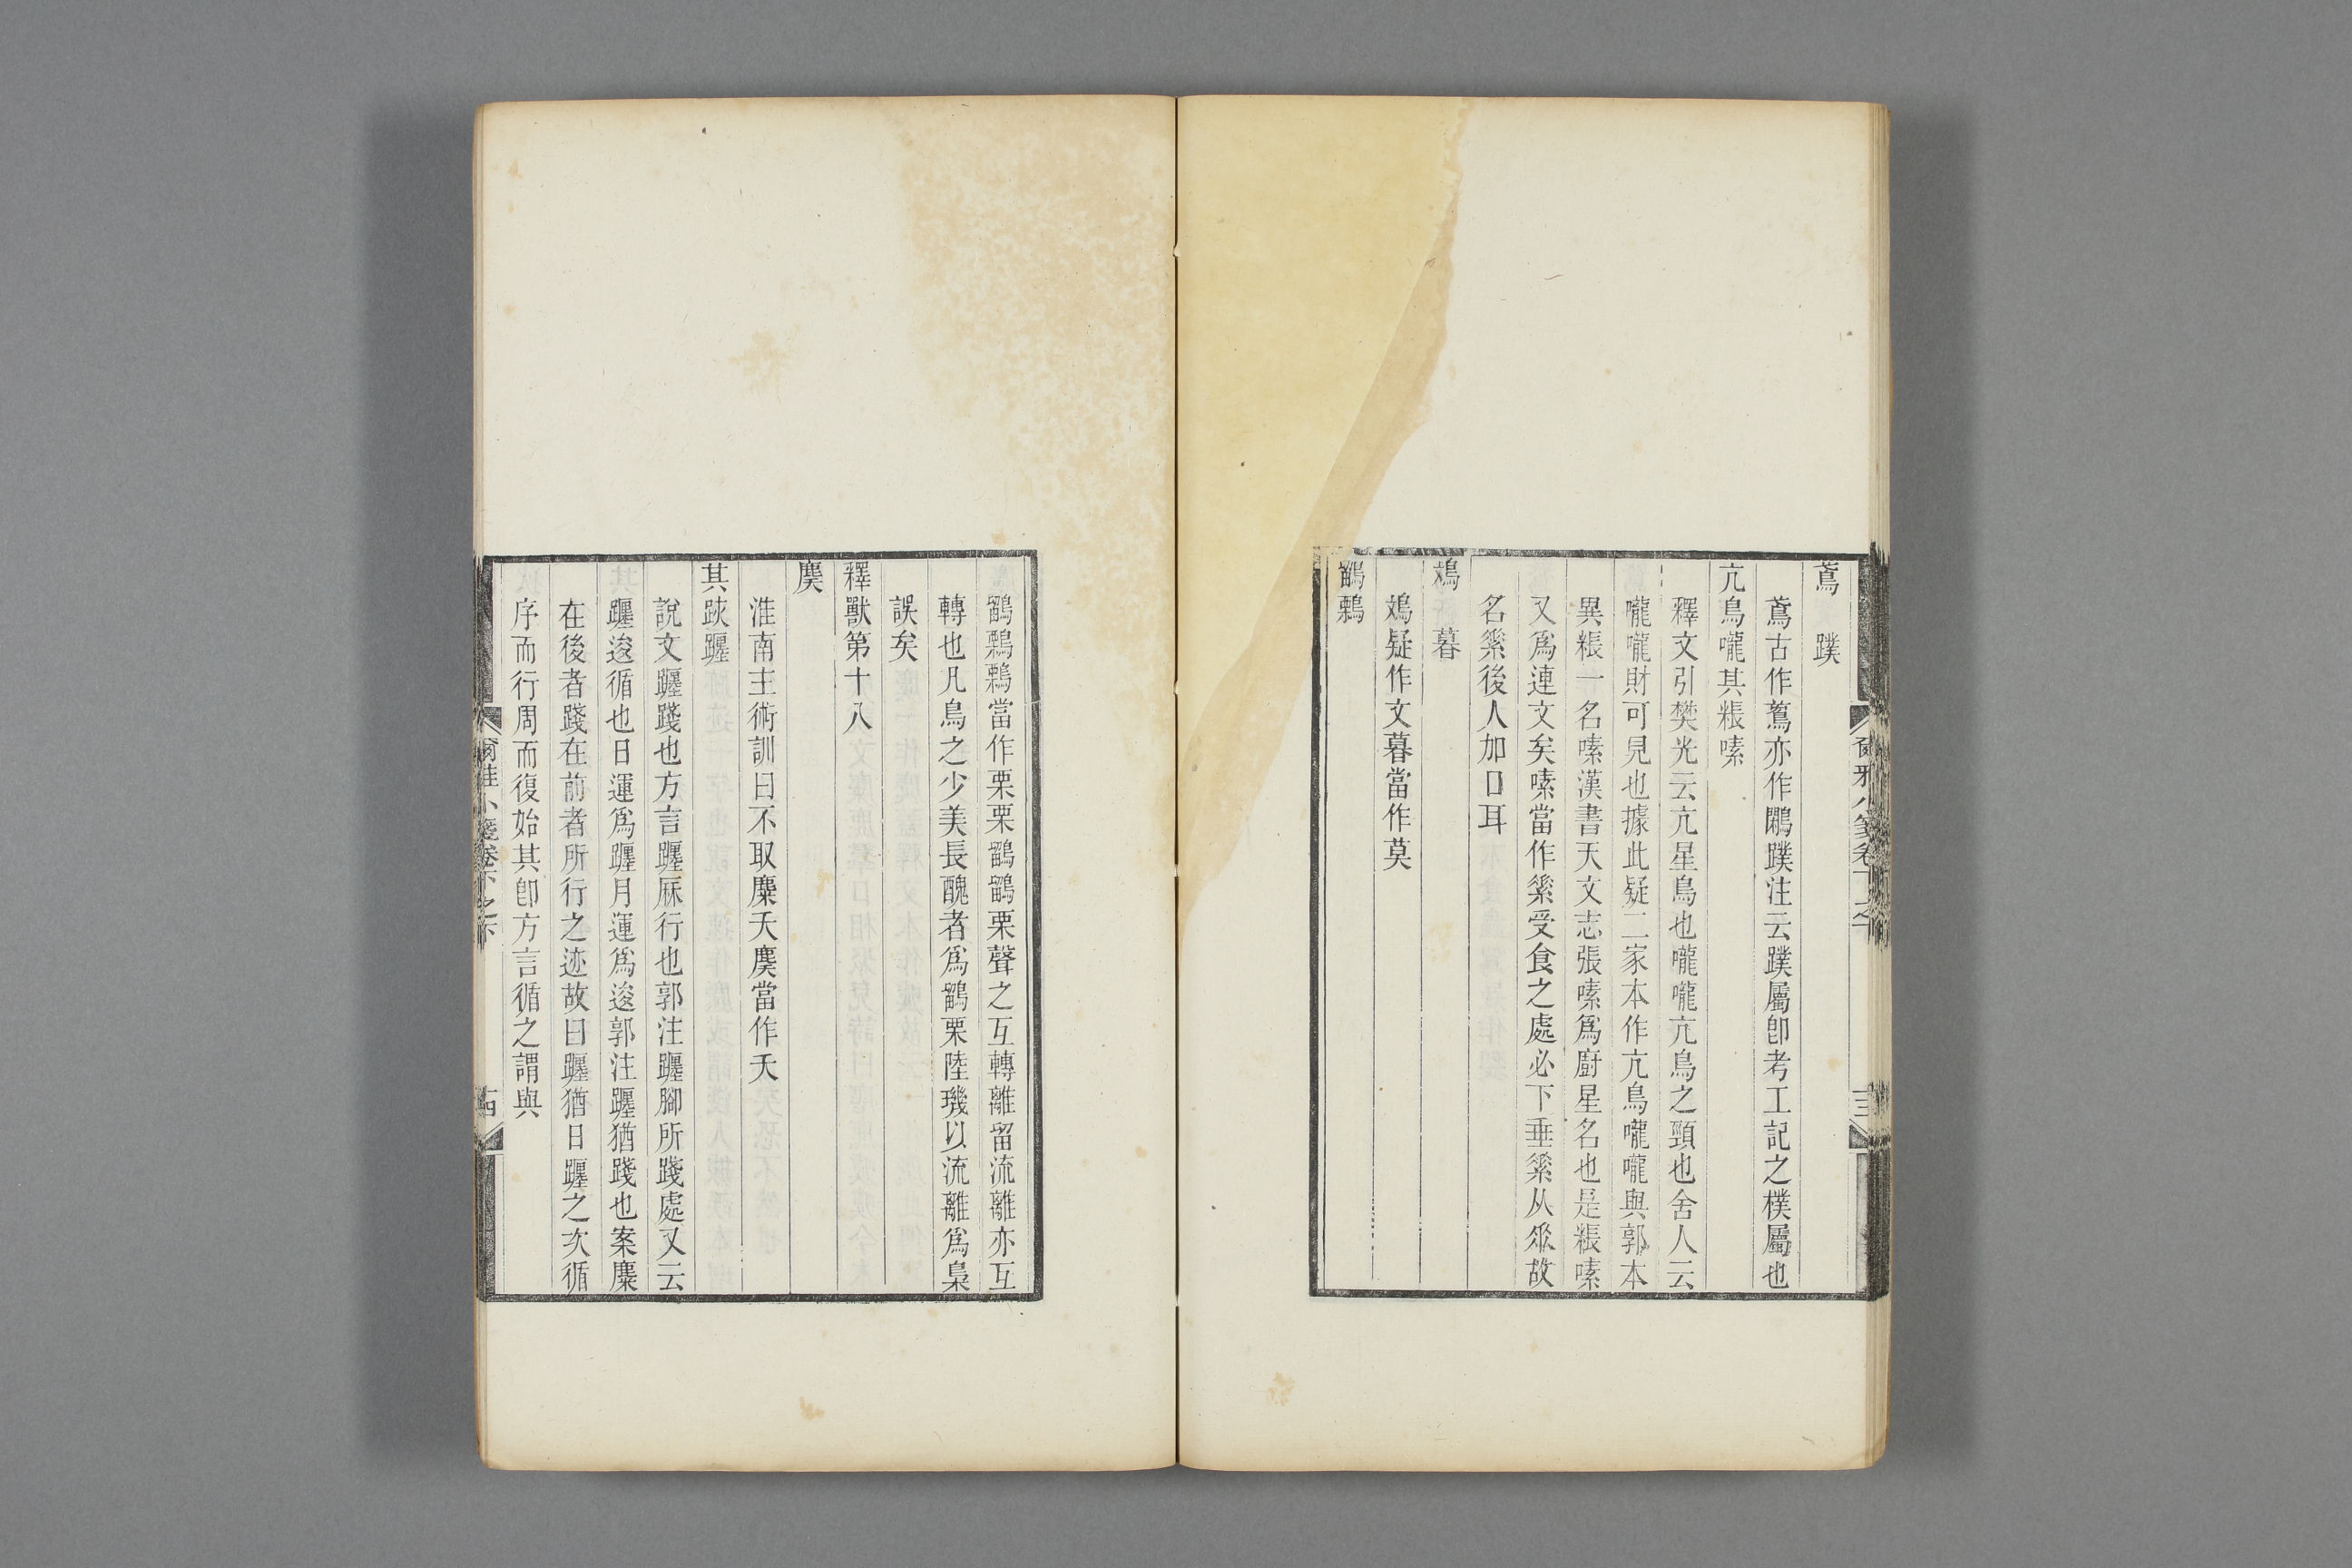 鳶　蹼
鳶古作蔦亦作鷳蹼注云蹼屬卽考工記之樸屬也
亢鳥嚨其粻嗉
釋文引樊光云亢星鳥也嚨嚨亢鳥之頸也舍人云
嚨嚨財可見也據此疑二家本作亢鳥嚨嚨與郭本
異粻一名嗉漢書天文志張嗉爲廚星名也是粻嗉
又爲連文矣嗉當作縏受食之處必下垂縏从惢故
名縏後人加口耳
鴆　暮
鴆疑作文暮當作莫
鶹鷅
鶹鷅鷅當作栗栗鶹鶹栗聲之互轉離留流離亦互
轉也凡鳥之少美長醜者爲鶹栗陸璣以流離爲梟
誤矣
釋獸第十八
麌
淮南主術訓曰不取麋夭麌當作夭
其𨁏躔
說文躔踐也方言躔厤行也郭注躔腳所踐處又云
躔逡循也日運爲躔月運爲逡郭注躔猶踐也案麋
在後者踐在前者所行之迹故曰躔猶日躔之次循
序而行周而復始其卽方言循之謂與
爾雅小箋卷下之下
十四